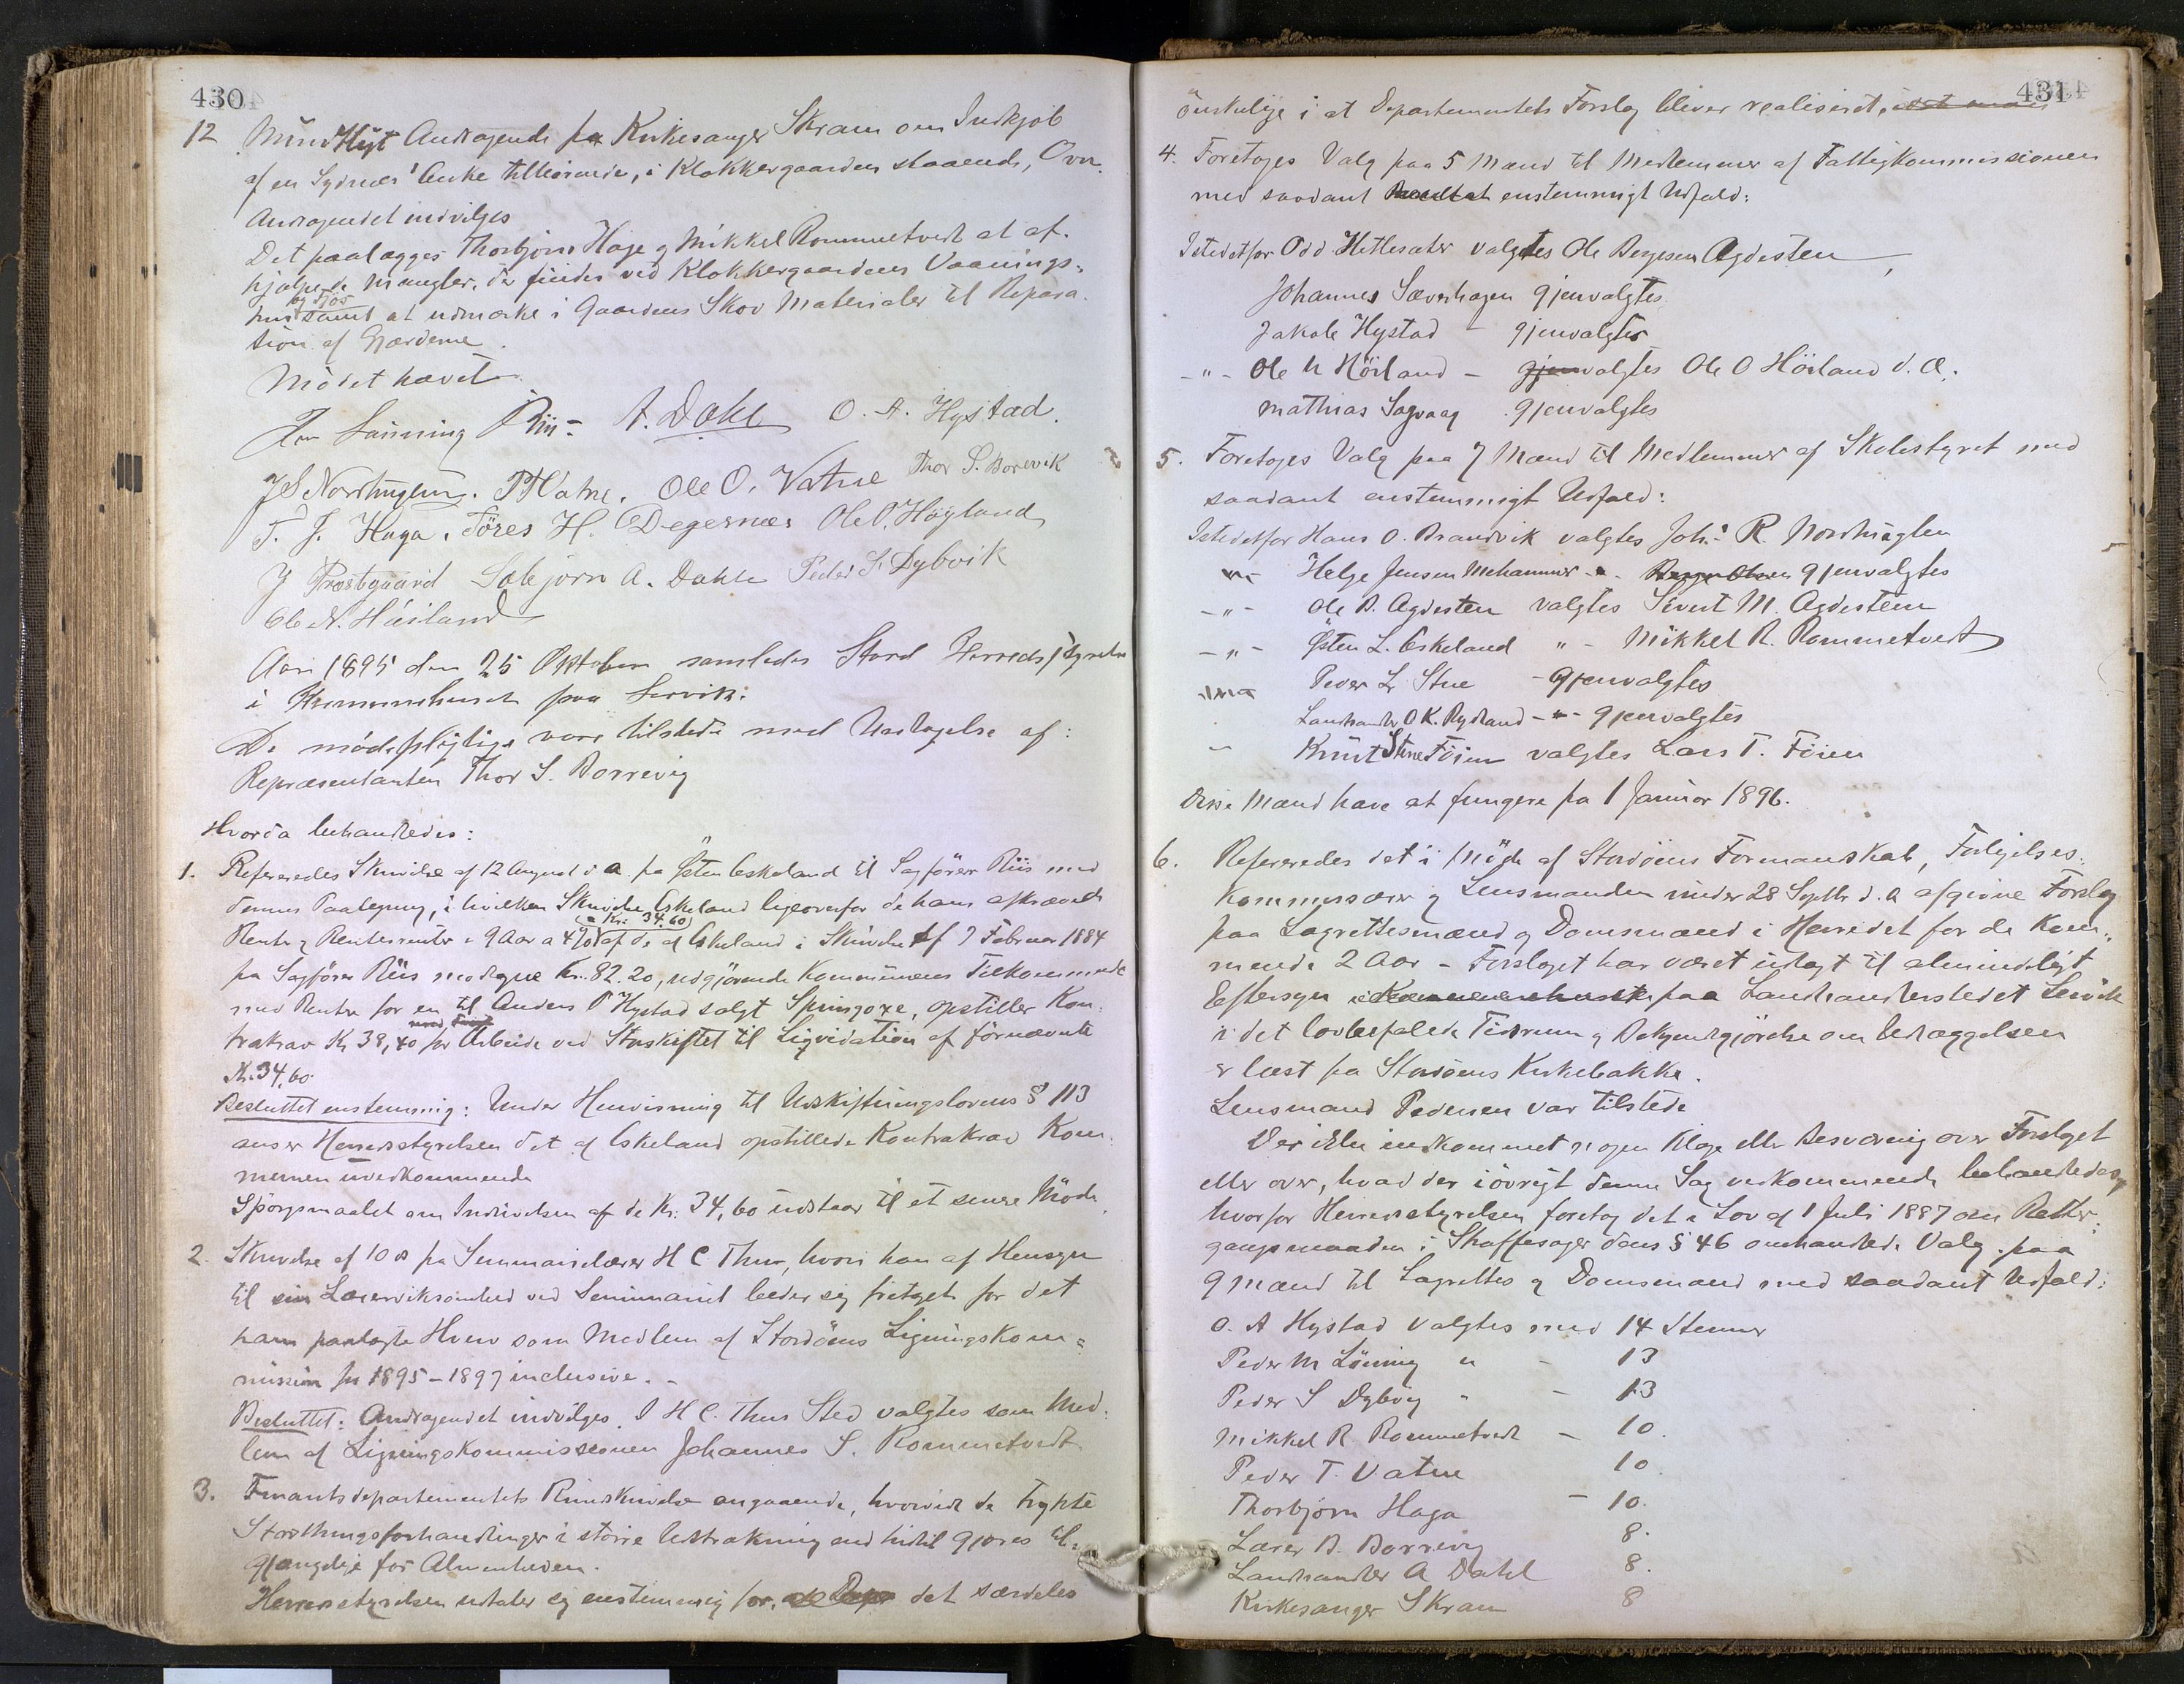 430
12 Mundtligt Andragende fra Kirkesanger Skram om Indkjøb
af en Sydnes' Enke tilhørende, i Klokkergaarden staaende, Ovn.
Andragendet indvilges
Det paalægges Thorbjørn Hage og Mikkel Rommetvedt at af-
hjælpe de Mangler, der findes ved Klokkergaardens Vaanings-
hus og Fjøs samt at udmærke i Gaardens Skov Materialer til Repara-
tion af Gjærderne.
Mødet hævet
Peder Lønning Riis A. Dahl O. A. Hystad.
J S Nordhuglen. P T Vatne. Ole O. Vatne Thor S. Borevik
T. J. Haga. Tøres H. Degernes Ole O. Høyland
J Prestgaard Sæbjørn A. Dahle Peder S. Dybvik
Ole N. Høiland
Aar 1895 den 25 Oktober samledes Stord Herredsstyrelse
i Kommunehuset paa Lervik:
De mødepligtige vare tilstede med Undtagelse af:
Repræsentanten Thor S. Borrevig
Hvorda behandledes:
1. Refereredes Skrivelse af 12 August d. a. fra Østen Eskeland til Sagfører Riis med
dennes Paategning, i hvilken Skrivelse Eskeland ligeoverfor de ham afkrævede
Renter og Rentesrenter i 9 Aar a 4% (= Kr. 34.60) af de af Eskeland i Skrivelse af 7 Februar 1884
fra Sagfører Riis modtagne Kr. 82.20, udgjørende Kommunens Tilkommende
med Renter for en til Anders P Hystad solgt Springoxe, opstiller Kon-
trakrav Kr 38,40 for Arbeide ved Storskiftet til Ligvidation af førnævnte
Kr. 34.60.
Besluttet enstemmig: Under Henvisning til Udskiftningslovens § 113
anser Herredsstyrelsen det af Eskeland opstillede Kontrakrav Kom-
munen uvedkommende
Spørgsmaalet om Inddrivelsen af de Kr. 34,60 udstaar til et senere Møde.
2. Skrivelse af 10 ds fra Seminarielærer H C Thue, hvori han af Hensyn
til sin Lærervirksomhed ved Seminariet beder sig fritaget for det
ham paalagte Hverv som Medlem af Stordøens Ligningskom-
mission for 1895-1897 inclusive. -
Besluttet: Andragendet indvilges. I H C. Thues Sted valgtes som Med-
lem af Ligningskommissionen Johannes S. Rommetvedt
3. Finantsdepartementets Rundskrivelse angaaende, hvorvidt de trykte
Storthingsforhandlinger i større Udstrækning end hidtil gjøres til-
gjængelige for Almenheden.
Herredsstyrelsen udtaler sig enstemmig for, det særdeles
431
ønskelige i at Departementets Forslag bliver realiseret,
4. Foretoges Valg paa 5 Mænd til Medlemmer af Fattigkommissionen
med saadant Resultat enstemmigt Udfald:
Istedetfor Odd Hetlesæter valgtes Ole Bergesen Agdesten,
Johannes Sæverhagen gjenvalgtes
Jakob Hystad - gjenvalgtes
-"- Ole N Høiland - gjenvalgtes Ole O Høiland d. Æ.
Mathias Sagvaag gjenvalgtes
5. Foretoges Valg paa 7 Mænd til Medlemmer af Skolestyret med
saadant enstemmigt Udfald:
Istedetfor Hans O. Brandvik valgtes Joh: R. Nordhuglen
Helge Jensen Mehammer gjenvalgtes
-"- Ole B. Agdesten valgtes Sivert M. Agdesteen
-"- Østen L. Eskeland " - Mikkel R. Rommetvedt
Peder L. Stue - gjenvalgtes
Landhandler O K. Rydland - gjenvalgtes
Knut Stene Føien valgtes Lars T. Føien
Disse Mænd have at fungere fra 1 Januar 1896.
6. Refereredes det i Møde af Stordøens Formandskab, Forligelses-
kommissærer og Lensmanden under 28 Septbr. d. A afgivne Forslag
paa Lagrettesmænd og Domsmænd i Herredet for de Kom-
mende 2 Aar - Forslaget har været udlagt til almindeligt
Eftersyn i Kommunehuset paa Landhandlerstedet Lervik
i det lovbefalede Tidsrum og Bekjendtgjørelse om Udlæggelsen
er læst fra Stordøens Kirkebakke.
Lensmand Pedersen var tilstede
Der ikke indkommet nogen Klage eller Besværing over Forslaget
eller over, hvad der iøvrigt denne Sag vedkommende behandledes,
hvorfor Herredsstyrelsen foretog det i Lov af 1 Juli 1887 om Retter-
gangsmaaden i Straffesager dens § 46 omhandlede Valg paa
9 Mænd til Lagrettes og Domsmænd med saadant Udfald:
O. A Hystad valgtes med 14 Stemmer
Peder M Lønning " - 13
Peder S Dybvig " - 13
Mikkel R Rommetvedt - 10.
Peder T. Vatne 10.
Thorbjørn Haga - 10.
Lærer B. Borrevig 8.
Landhandler A Dahl 8.
Kirkesanger Skram 8